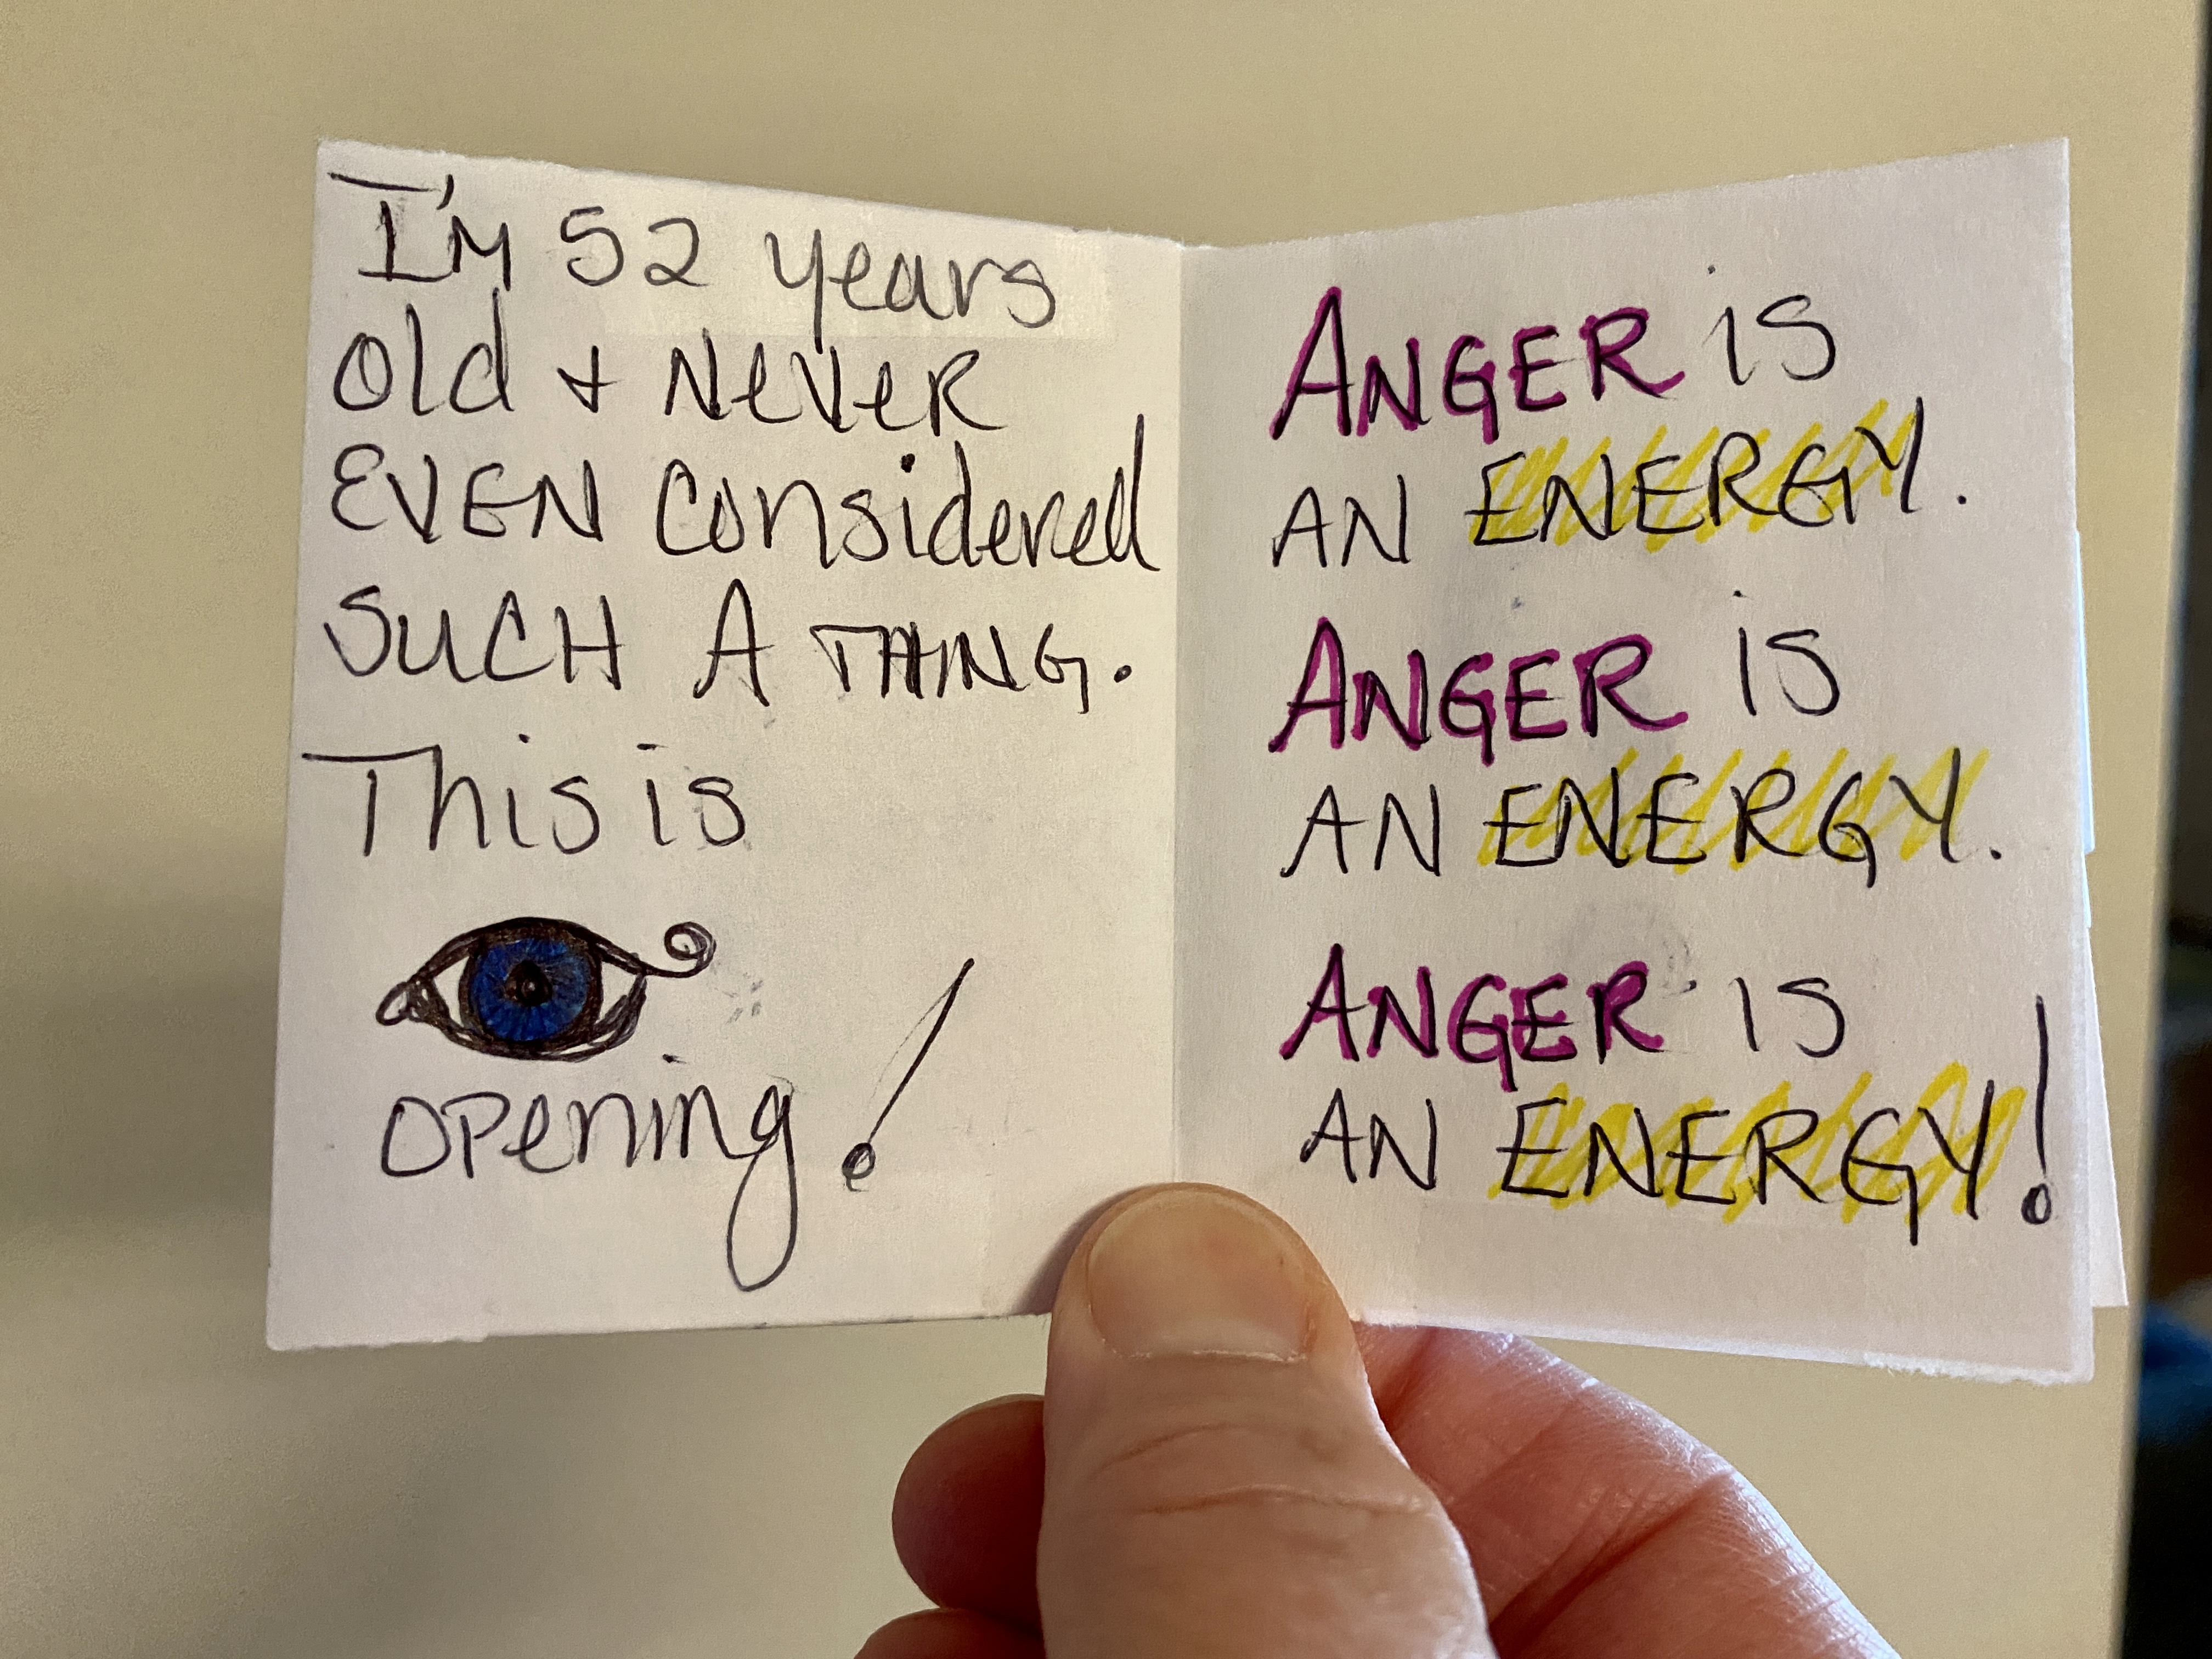 I'M 52 years
old + NeVeR
EVEN considered
SUCH A THING.
This is
opening!
ANGER is
AN ENERGY.
ANGER is
AN ENERGY.
ANGER is
AN ENERGY!